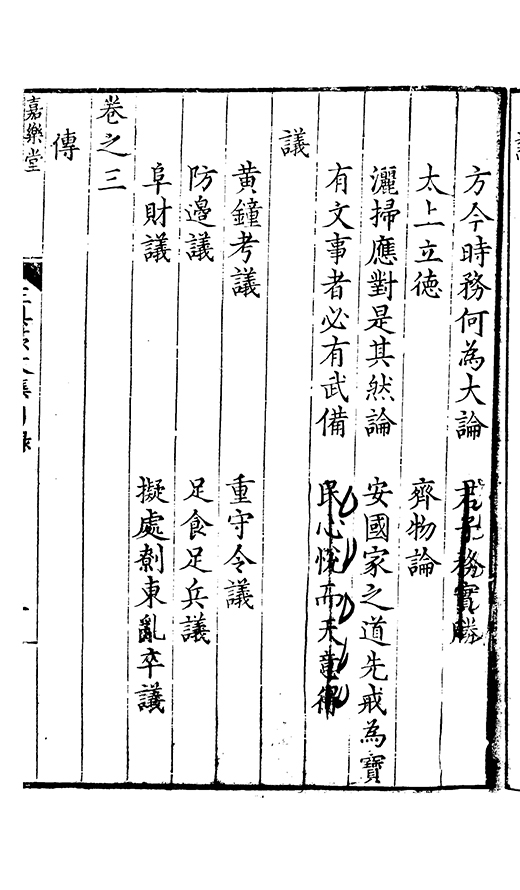 方今時務何為大論 君子務實勝
太上立德 齊物論
灑掃應對是其然論 安國家之道先戒為寶
有文事者必有武備 民心悅而天意得
議
黄鐘考議 重守令議
防邊議 足食足兵議
阜財議 擬處遼東亂卒議
卷之三
傳
嘉樂堂
集目錄